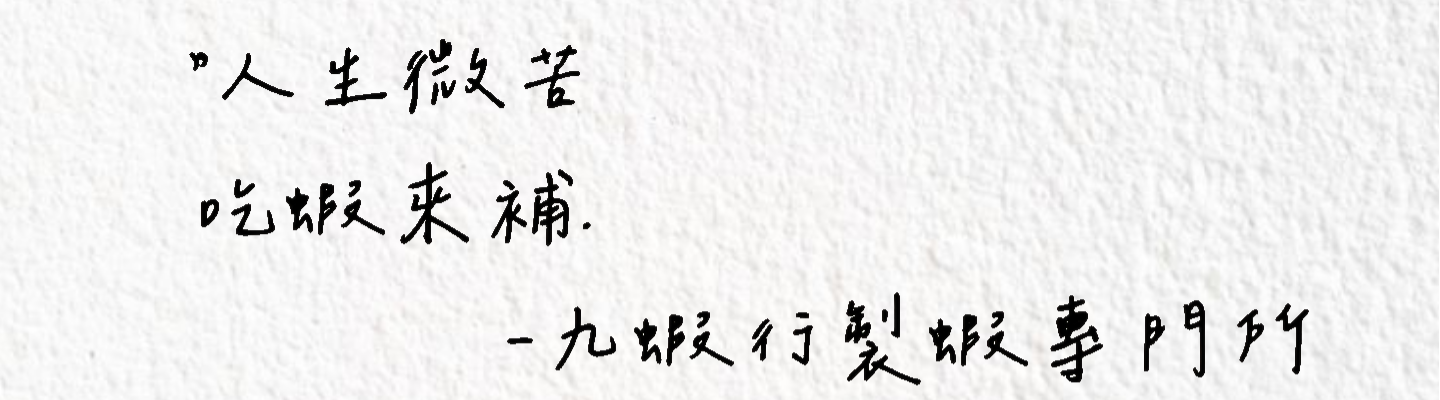 "人生微苦
吃蝦來補.
-九蝦行製蝦專門所